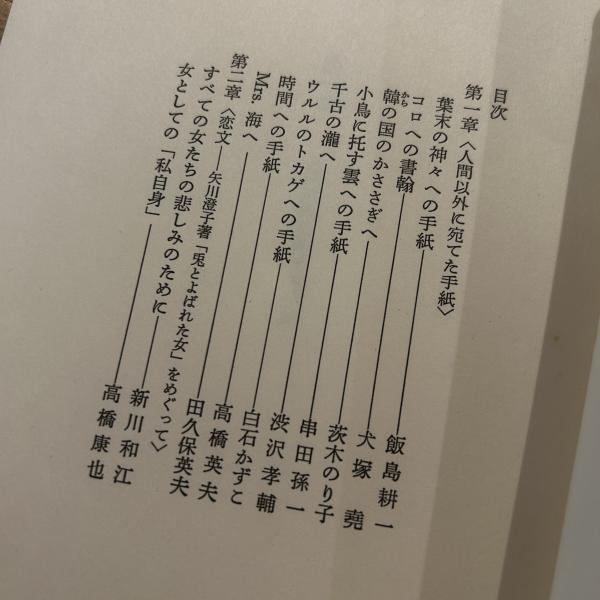 目次
第一章〈人間以外に宛てた手紙〉
葉末の神々への手紙――飯島耕一
コロへの書翰――犬塚堯
韓の国のかささぎへ――茨木のり子
小鳥に托す雲への手紙――串田孫一
千古の瀧へ――渋沢孝輔
ウルルのトカゲへの手紙――白石かずこ
時間への手紙――高橋英夫
Mrs. 海へ――田久保英夫
第二章〈恋文――矢川澄子著「兎とよばれた女」をめぐって〉
すべての女たちの悲しみのために――新川和江
女としての「私自身」――高橋康也